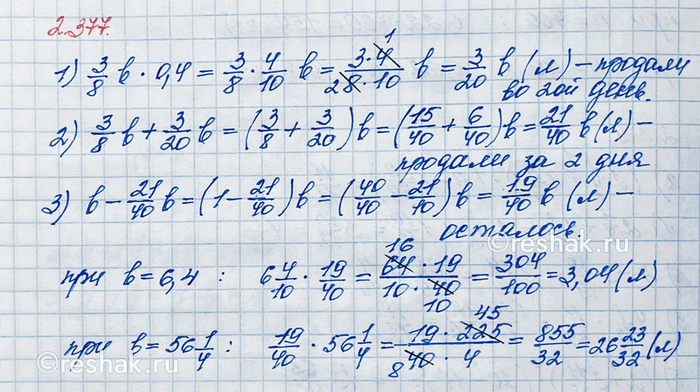 2.377.
1) 3/8 b · 0,4 = 3/8 · 4/10 b = 3·4/8·10 b = 3/20 b (л) – продали
1
2
во 2ой день.
2) 3/8 b + 3/20 b = (3/8 + 3/20) b = (15/40 + 6/40) b = 21/40 b (л) –
продали за 2 дня
3) b – 21/40 b = (1 – 21/40) b = (40/40 – 21/10) b = 19/40 b (л) –
осталось.
при b = 6,4 : 6 4/10 · 19/40 = 64·19/10·40 = 304/100 = 3,04 (л)
16
10
при b = 56 1/4 : 19/40 · 56 1/4 = 19·225/40·4 = 855/32 = 26 23/32 (л)
45
8
©reshak.ru
©reshak.ru